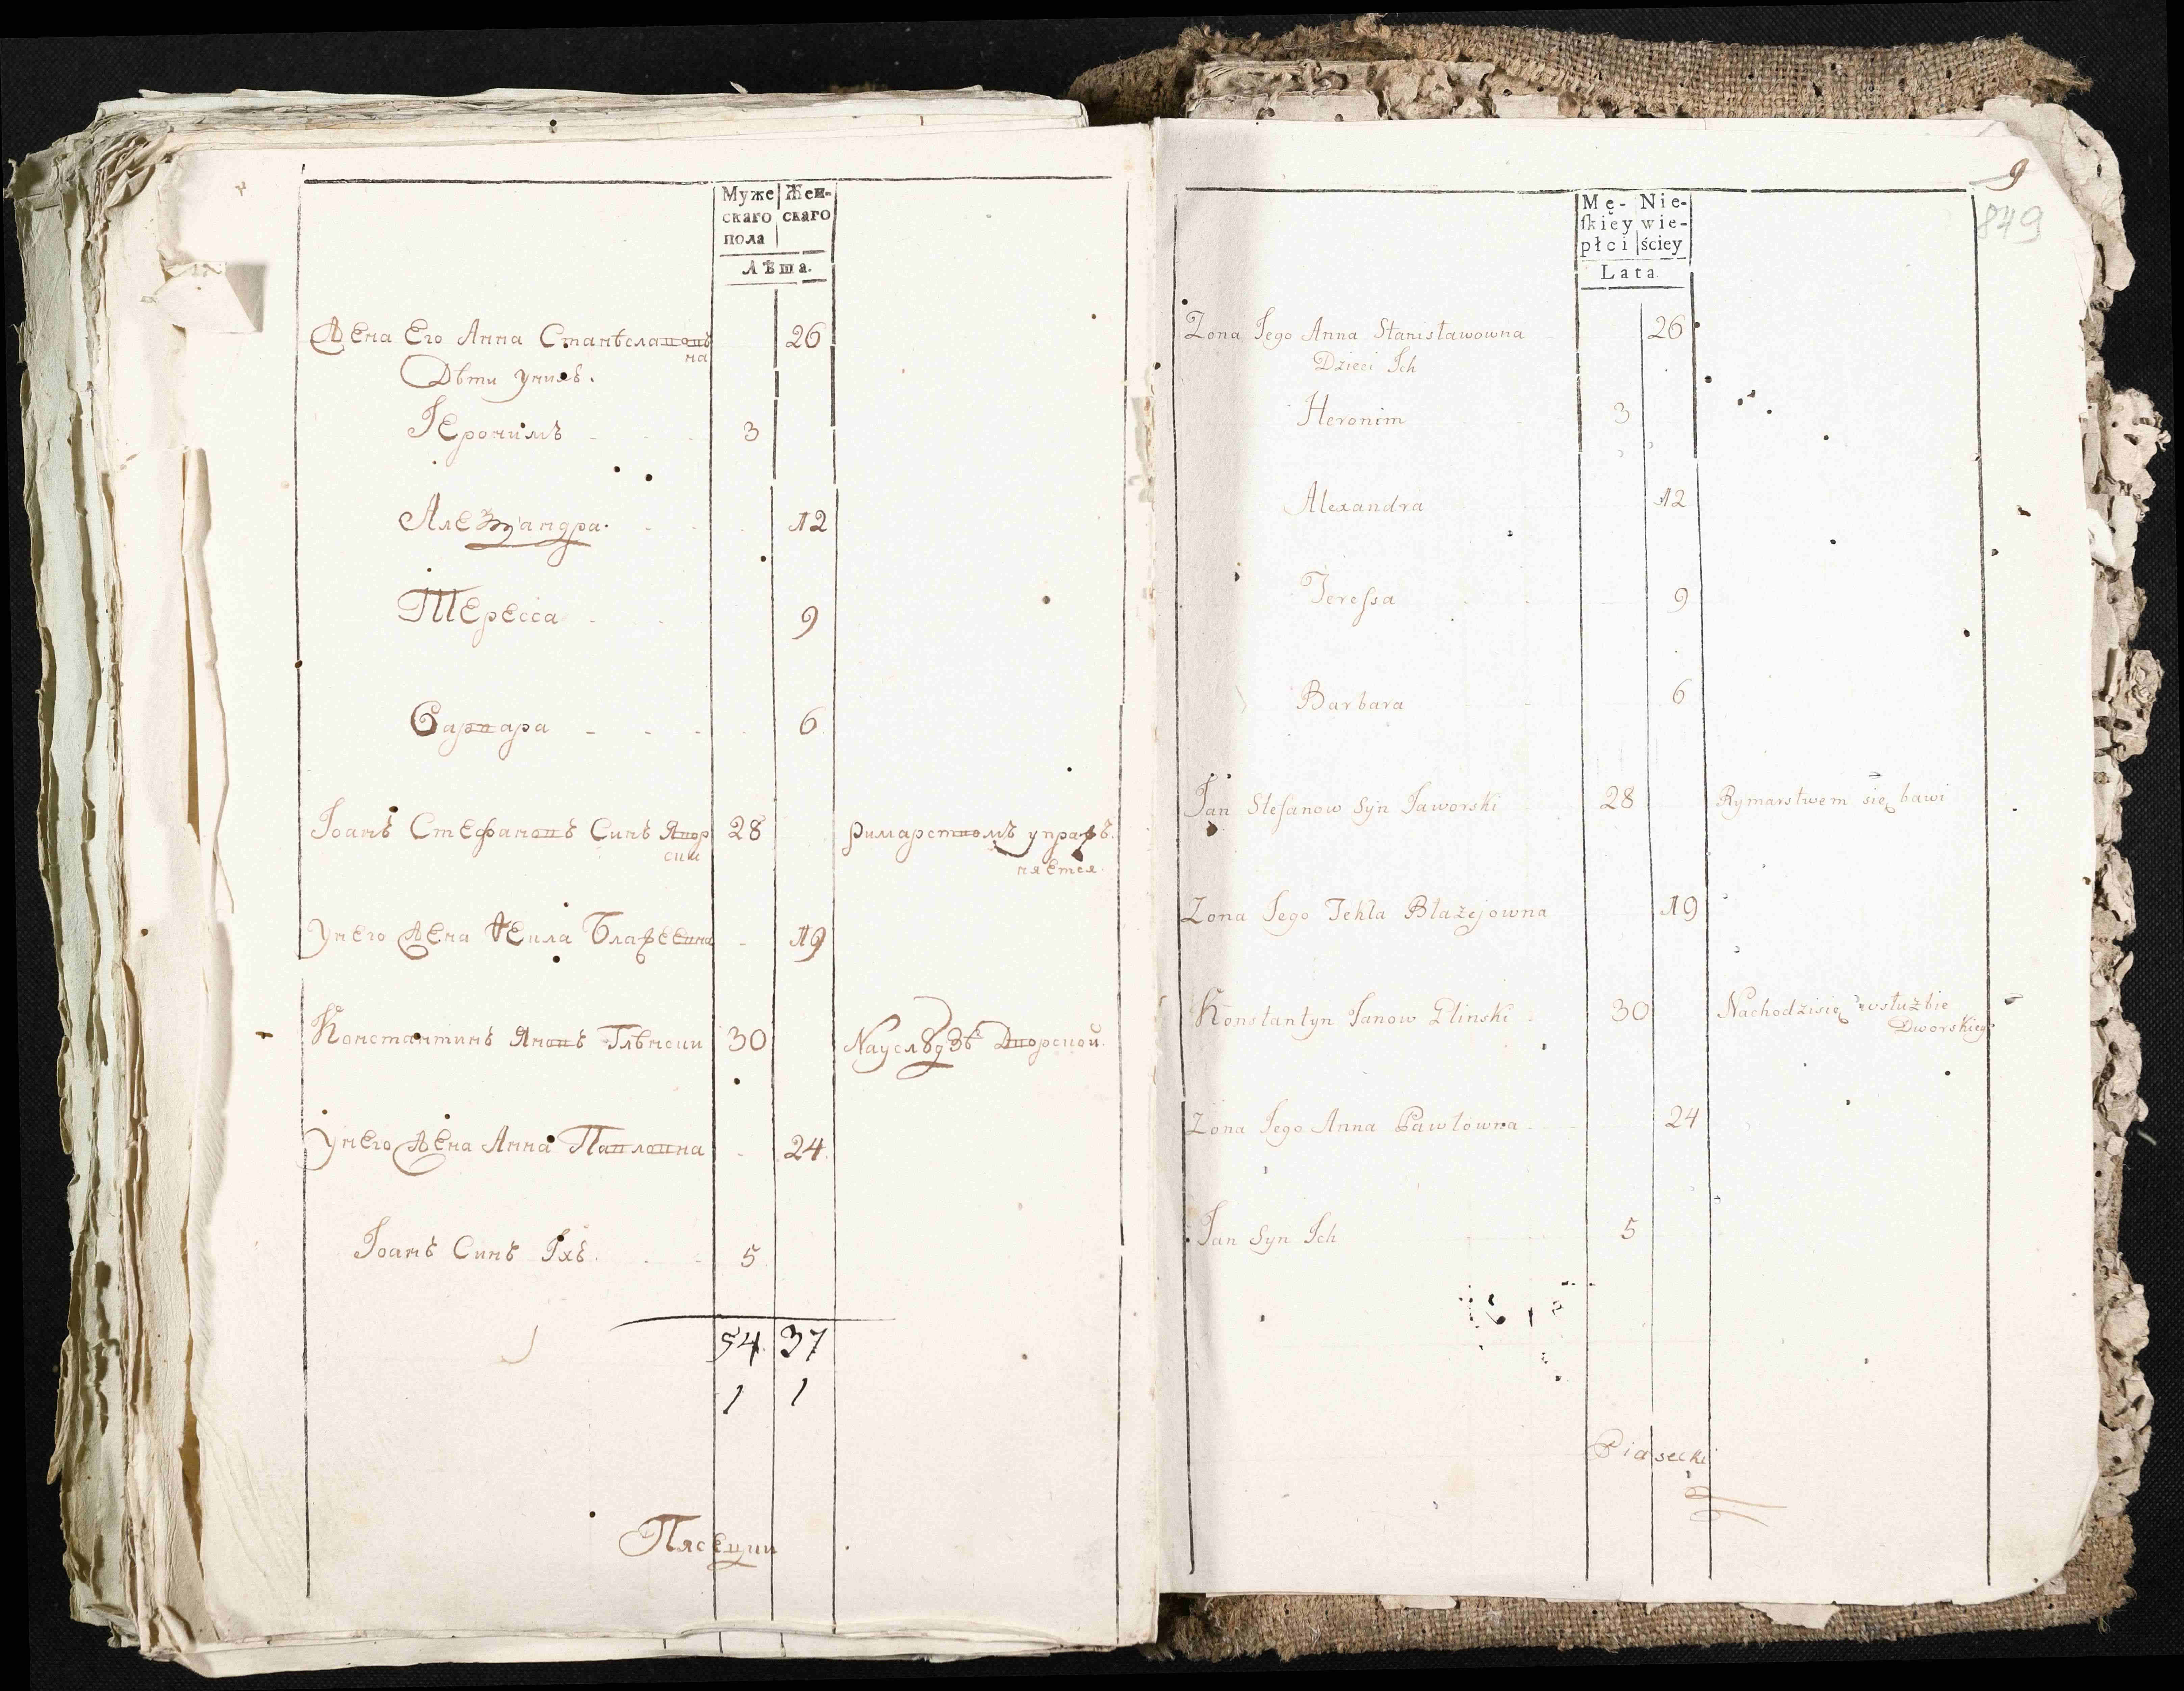 Муже Жен-
скаго скаго
пола
Лѣта.
Жена Его Анна Станѣславов
на 26
Дѣти унихъ.
Іеронимъ 3
Александра. 12
Тересса 9
Барвара 6
Іоанъ Стефановъ Синъ Явор
ски 28 римарствомъ упраж
няется
унего Жена Текла Блажеевна 19
Константинъ Яновъ Глѣнски 30 Науслузѣ Дворской.
унего Жена Анна Павловна 24
Іоанъ Синъ Іхъ. 5
54 37
1 1
Пясецки
9
849
Mę- Nie-
ſkiey wie-
płci ściey
Lata.
Zona Jego Anna Stanisławowna 26
Dzieci Ich
Heronim 3
Alexandra 12
Tereſsa 9
Barbara 6
Jan Stefanow Syn Jaworski 28 Rymarstwem się bawi
Zona Jego Tekla Błażejowna 19
Konstantyn Janow Glinski 30 Nachodzisię wsłużbie
Dworskiego
Zona Jego Anna Pawłowna 24
Jan Syn Ich 5
Piasecki